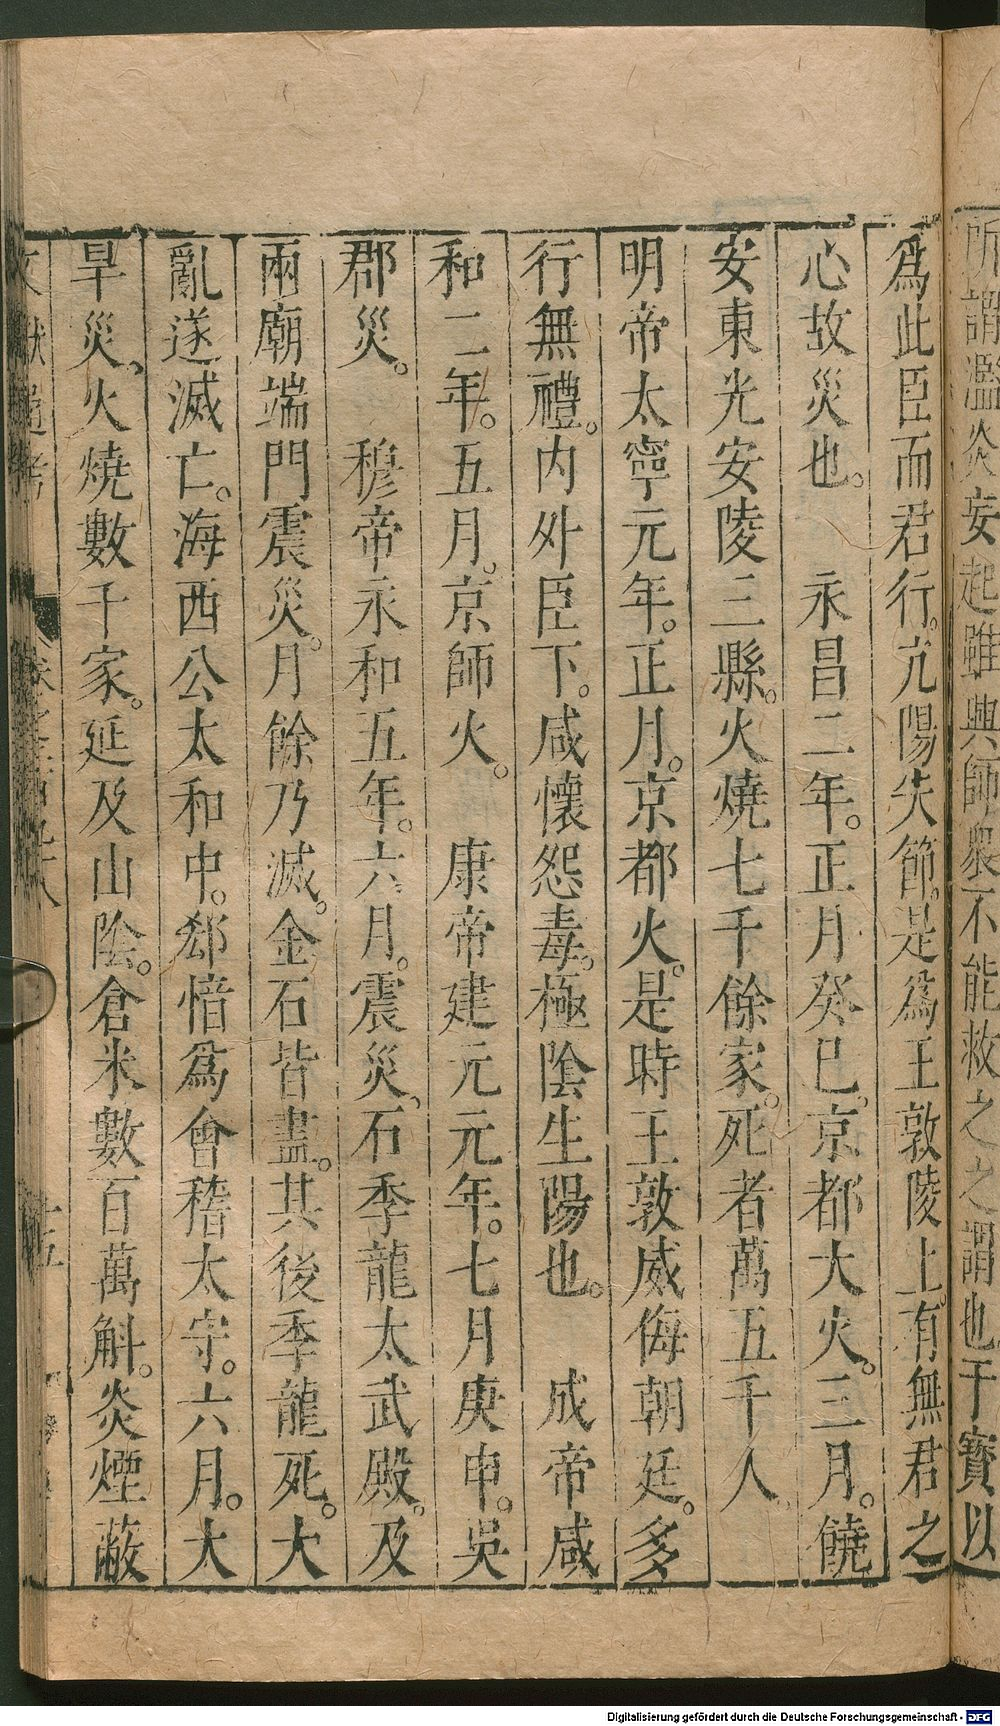 所謂濫炎妄起雖興師衆不能救之之謂也干寶以
爲此臣而君行。亢陽失節。是爲王敦陵上。有無君之
心故災也。　永昌二年。正月癸巳。京都大火。三月。饒
安東光安陵三縣。火燒七千餘家。死者萬五千人。
明帝太寧元年。正月。京都火。是時王敦威侮朝廷。多
行無禮。内外臣下。咸懷怨毒。極陰生陽也。　成帝咸
和二年。五月。京師火。　康帝建元元年。七月庚申。吳
郡災。　穆帝永和五年。六月。震災、石季龍太武殿。及
兩廟端門震災。月餘乃滅。金石皆盡。其後季龍死。大
亂遂滅亡。海西公太和中。郄愔爲會稽太守。六月。大
旱災、火燒數千家。延及山陰。倉米數百萬斛。炎煙蔽